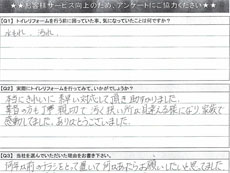 ★★お客様サービス向上のため、アンケートにご協力ください★★
【Q1】トイレリフォームを行う前に困っていた事、気になっていたことは何ですか?
水もれ、汚れ
【Q2】実際にトイレリフォームを行ってみて、いかがでしたか?
本当にきれいに 早い対応して頂き助かりました。
親切で 汚く狭い所
感動してました。ありがとうございました。
【Q3】当社を選んでいただいた理由をお書き下さい。
何年以前のチラシをとって置いて
お願いしたいと思ってました